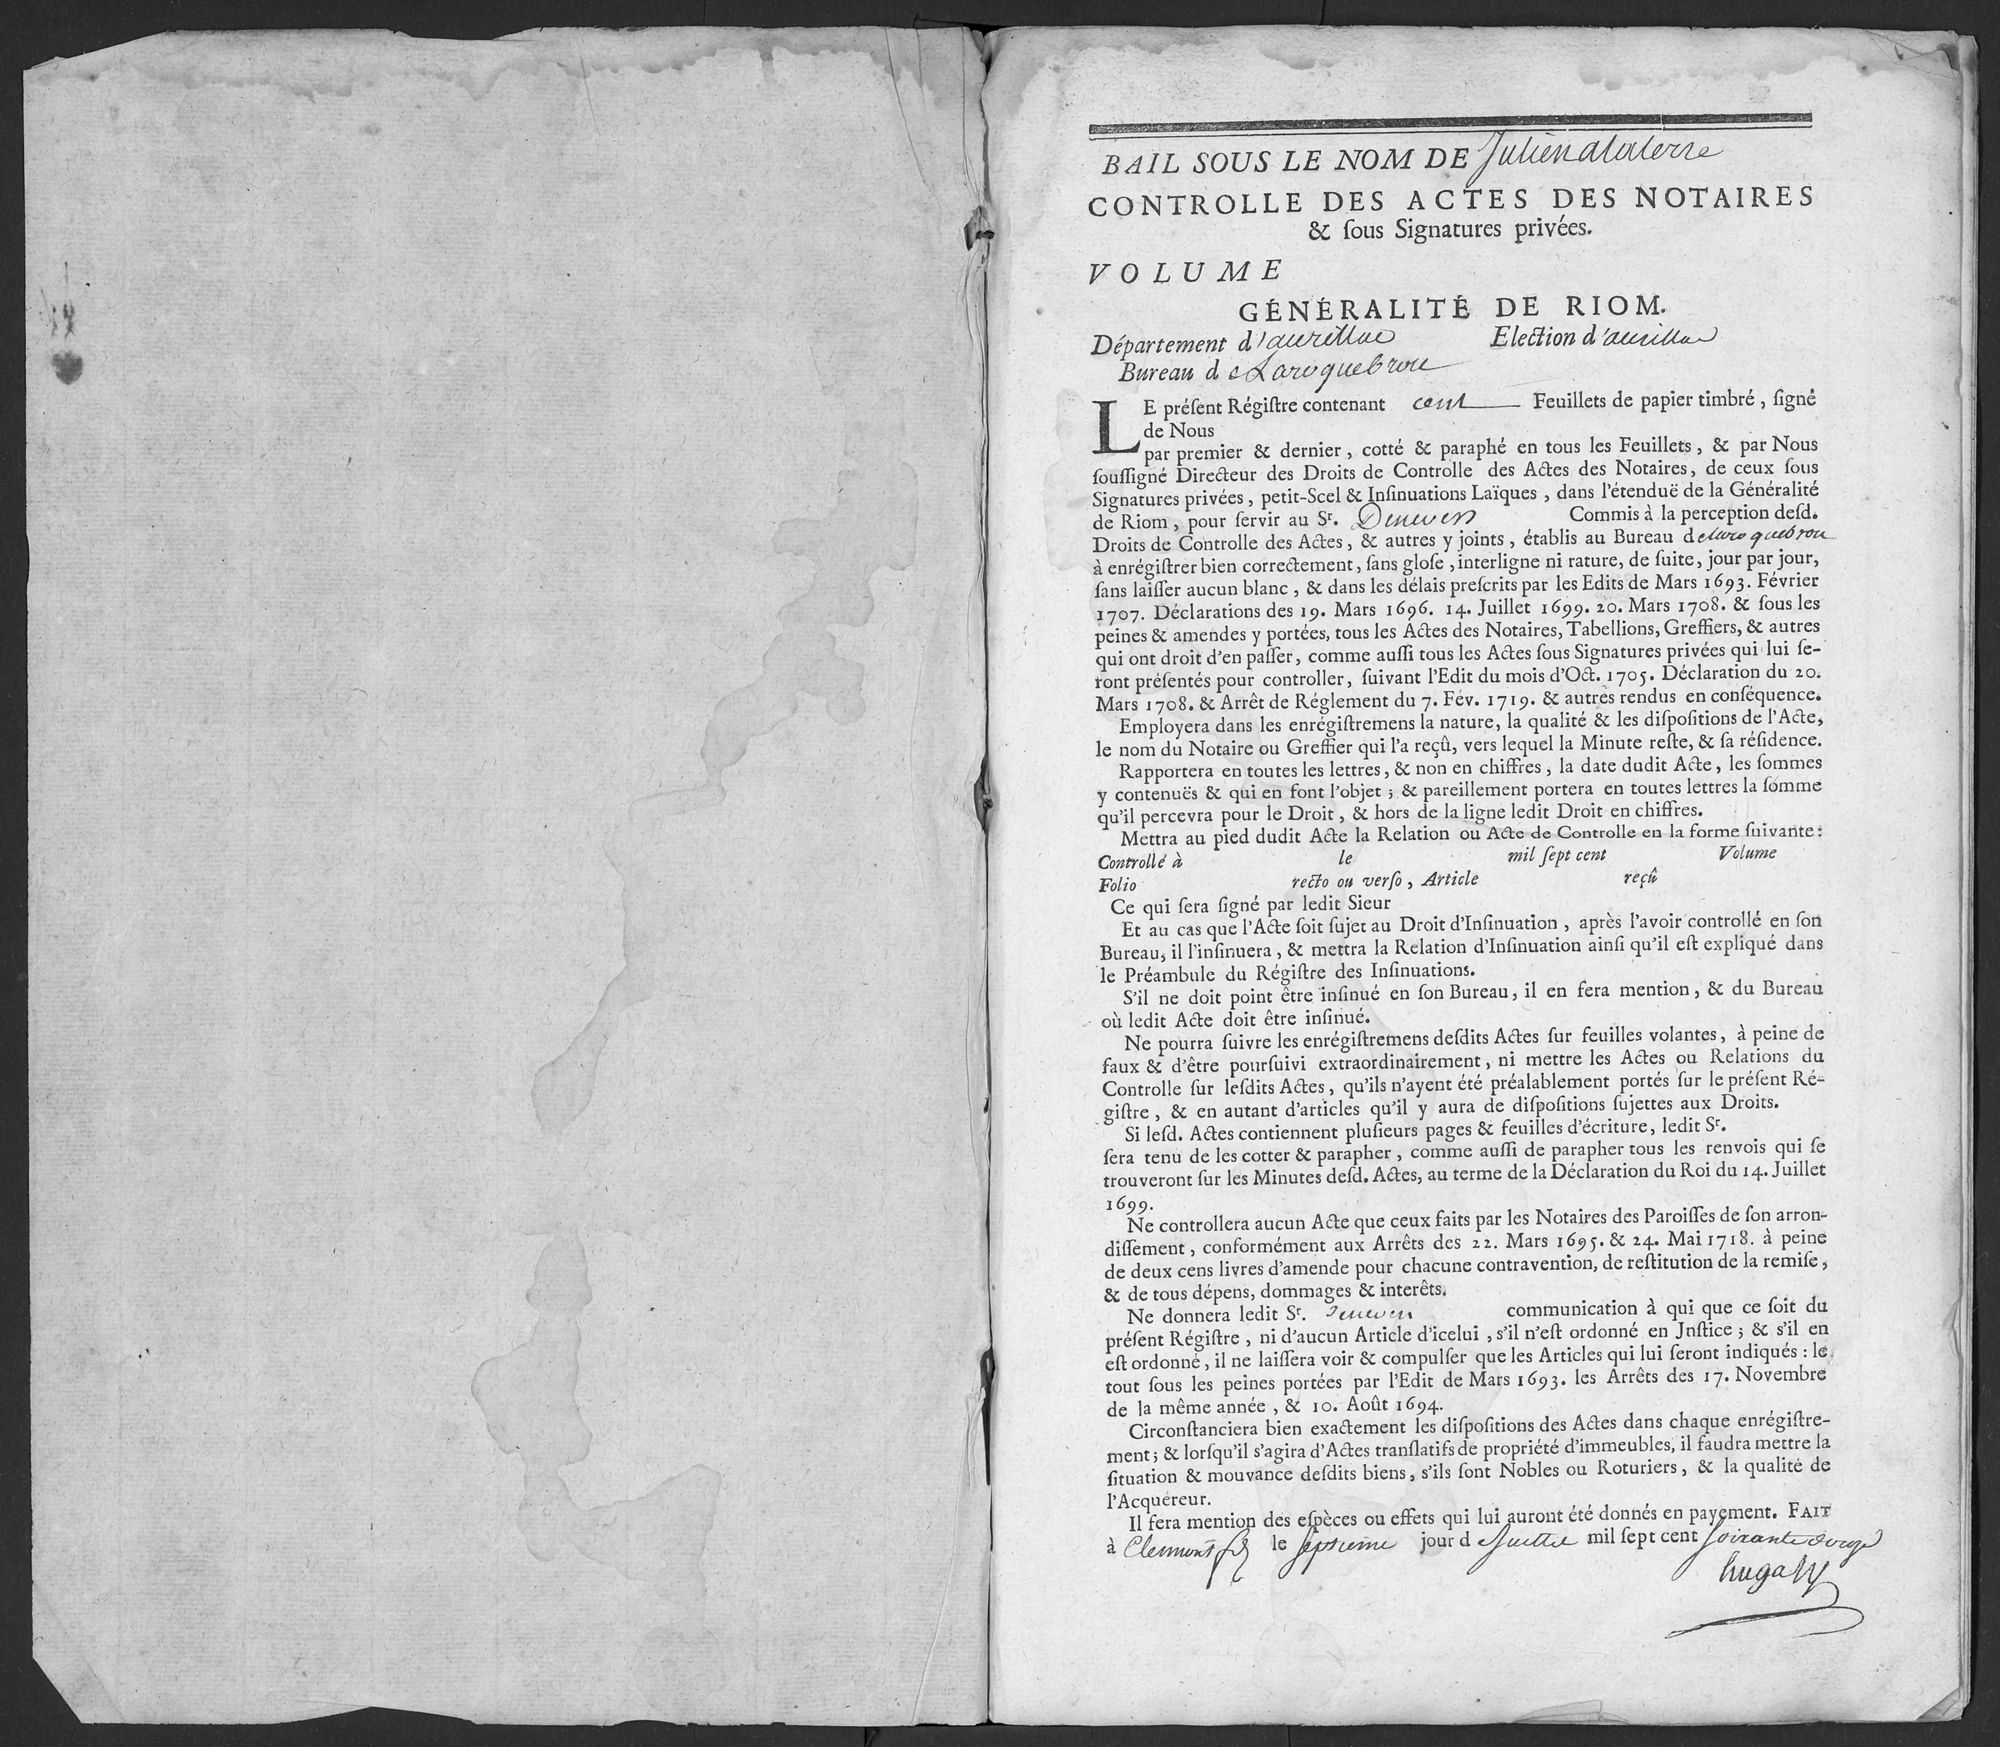 BAIL SOUS LE NOM DE Julien alaterre
CONTROLLE DES ACTES DES NOTAIRES
& ſous Signatures privées.
VOLUME
GÉNÉRALITÉ DE RIOM.
Département d'aurillac Election d'aurillac
Bureau de Laroquebrou
LE préſent Régiſtre contenant cent Feuillets de papier timbré, ſigné
de Nous
par premier & dernier, cotté & paraphé en tous les Feuillets, & par Nous
ſouſſigné Directeur des Droits de Controlle des Actes des Notaires, de ceux ſous
Signatures privées, petit-Scel & Inſinuations Laïques, dans l'étenduë de la Généralité
de Riom, pour ſervir au Sr. Commis à la perception deſd.
Droits de Controlle des Actes, & autres y joints, établis au Bureau de laroquebrou
à enrégiſtrer bien correctement, ſans gloſe, interligne ni rature, de ſuite, jour par jour,
ſans laiſſer aucun blanc, & dans les délais preſcrits par les Edits de Mars 1693. Février
1707. Déclarations des 19. Mars 1696. 14. Juillet 1699. 20. Mars 1708. & ſous les
peines & amendes y portées, tous les Actes des Notaires, Tabellions, Greffiers, & autres
qui ont droit d'en paſſer, comme auſſi tous les Actes ſous Signatures privées qui lui ſe-
ront préſentés pour controller, ſuivant l'Edit du mois d'Oct. 1705. Déclaration du 20.
Mars 1708. & Arrêt de Réglement du 7. Fév. 1719. & autres rendus en conſéquence.
Employera dans les enrégiſtremens la nature, la qualité & les diſpoſitions de l'Acte,
le nom du Notaire ou Greffier qui l'a reçû, vers lequel la Minute reſte, & ſa réſidence.
Rapportera en toutes les lettres, & non en chiffres, la date dudit Acte, les ſommes
y contenuës & qui en font l'objet; & pareillement portera en toutes lettres la ſomme
qu'il percevra pour le Droit, & hors de la ligne ledit Droit en chiffres.
Mettra au pied dudit Acte la Relation ou Acte de Controlle en la forme ſuivante:
Controllé à le mil ſept cent Volume
Folio recto ou verſo, Article reçû
Ce qui ſera ſigné par ledit Sieur
Et au cas que l'Acte ſoit ſujet au Droit d'Inſinuation, après l'avoir controllé en ſon
Bureau, il l'inſinuera, & mettra la Relation d'Inſinuation ainſi qu'il eſt expliqué dans
le Préambule du Régiſtre des Inſinuations.
S'il ne doit point être inſinué en ſon Bureau, il en fera mention, & du Bureau
où ledit Acte doit être inſinué.
Ne pourra ſuivre les enrégiſtremens deſdits Actes ſur feuilles volantes, à peine de
faux & d'être pourſuivi extraordinairement, ni mettre les Actes ou Relations du
Controlle ſur leſdits Actes, qu'ils n'ayent été préalablement portés ſur le préſent Ré-
giſtre, & en autant d'articles qu'il y aura de diſpoſitions ſujettes aux Droits.
Si leſd. Actes contiennent pluſieurs pages & feuilles d'écriture, ledit Sr.
ſera tenu de les cotter & parapher, comme auſſi de parapher tous les renvois qui ſe
trouveront ſur les Minutes deſd. Actes, au terme de la Déclaration du Roi du 14. Juillet
1699.
Ne controllera aucun Acte que ceux faits par les Notaires des Paroiſſes de ſon arron-
diſſement, conformément aux Arrêts des 22. Mars 1695. & 24. Mai 1718. à peine
de deux cens livres d'amende pour chacune contravention, de reſtitution de la remiſe,
& de tous dépens, dommages & interêts.
Ne donnera ledit Sr. communication à qui que ce ſoit du
préſent Régiſtre, ni d'aucun Article d'icelui, s'il n'eſt ordonné en Jnſtice; & s'il en
eſt ordonné, il ne laiſſera voir & compulſer que les Articles qui lui ſeront indiqués: le
tout ſous les peines portées par l'Edit de Mars 1693. les Arrêts des 17. Novembre
de la même année, & 10. Août 1694.
Circonſtanciera bien exactement les diſpoſitions des Actes dans chaque enrégiſtre-
ment; & lorſqu'il s'agira d'Actes tranſlatifs de propriété d'immeubles, il faudra mettre la
ſituation & mouvance deſdits biens, s'ils ſont Nobles ou Roturiers, & la qualité de
l'Acquéreur.
Il fera mention des eſpèces ou effets qui lui auront été donnés en payement. FAIT
à Clermont fd le septieme jour de Juillet mil ſept cent soixante douze
hugally